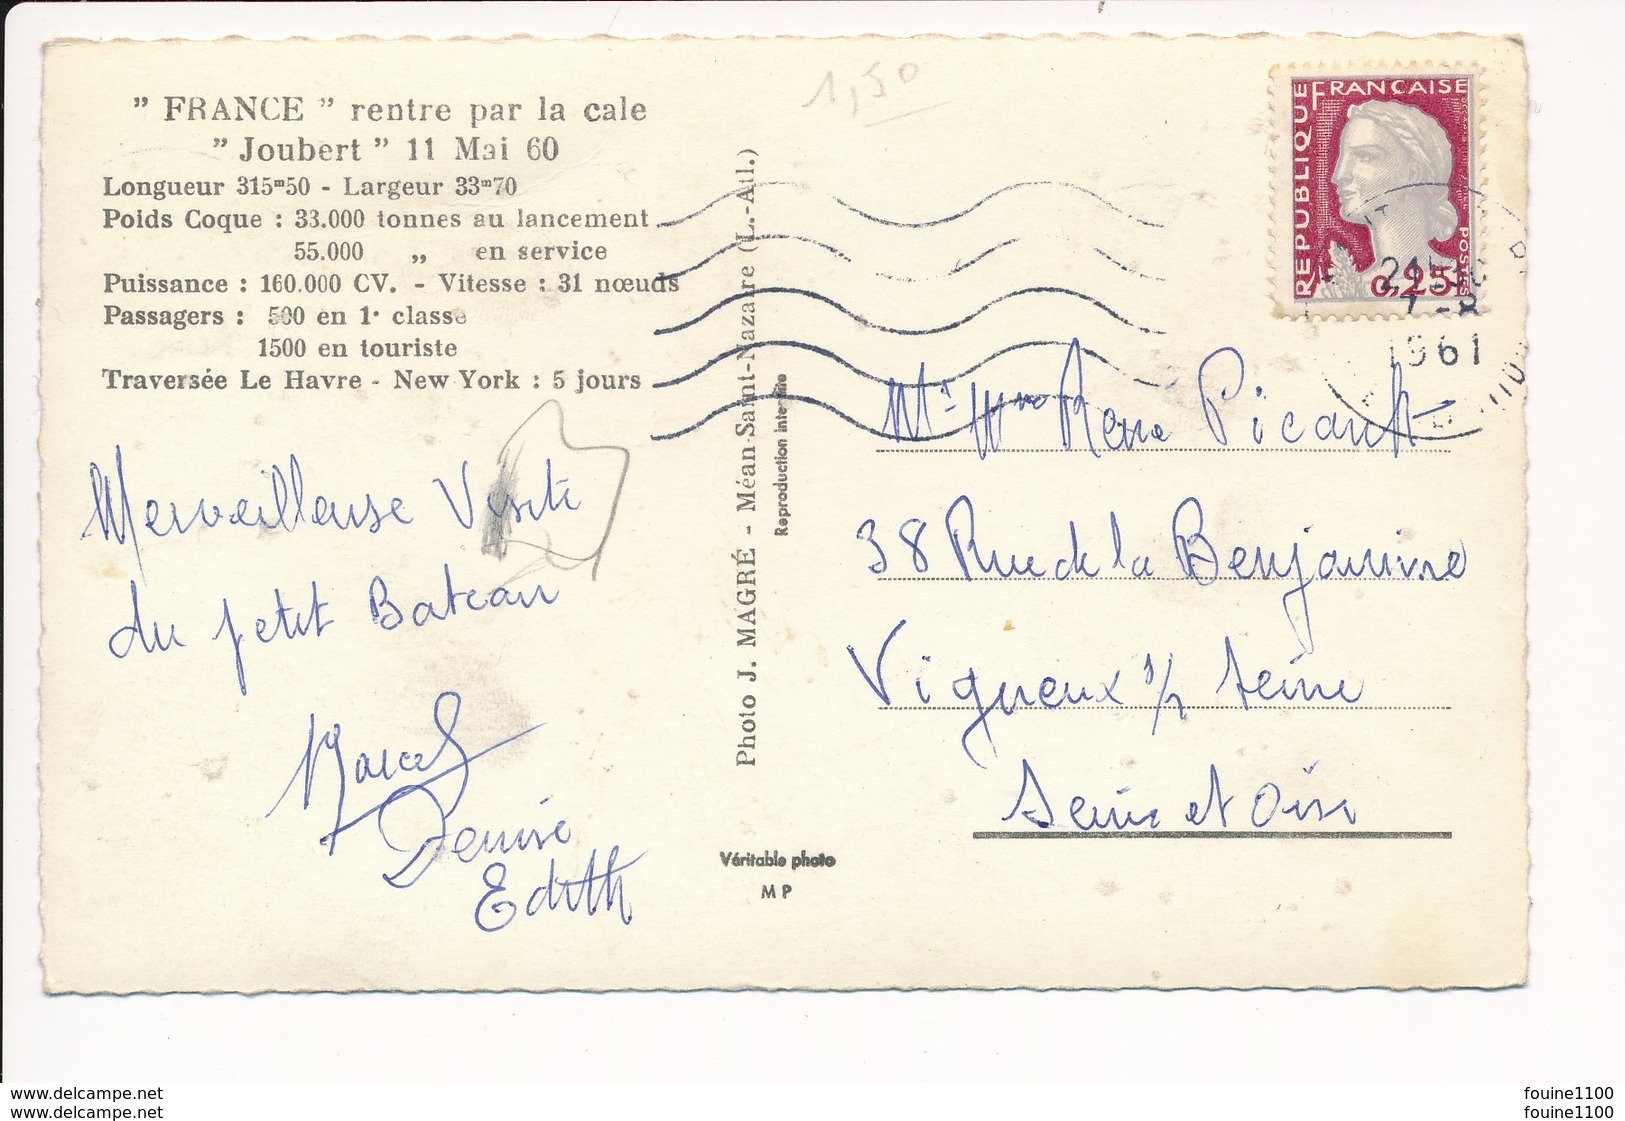 " FRANCE " rentre par la cale
" Joubert " 11 Mai 60
Longueur 315ᵐ50 - Largeur 33ᵐ70
Poids Coque : 33.000 tonnes au lancement
55.000 „ en service
Puissance : 160.000 CV. - Vitesse : 31 nœuds
Passagers : 500 en 1ᵉ classe
1500 en touriste
Traversée Le Havre - New York : 5 jours
Merveilleuse Visite
du petit Bateau
Marcel
Denise
Edith
Photo J. MAGRÉ - Méan-Saint-Nazaire (L.-Atl.)
Reproduction interdite
Véritable photo
M P
1,50
REPUBLIQUE FRANÇAISE
POSTES
0,25
1961
Mr Mme René Picault
38 Rue de la Benjamine
Vigneux s/ Seine
Seine et Oise
www.delcampe.net
www.delcampe.net
fouine1100
fouine1100